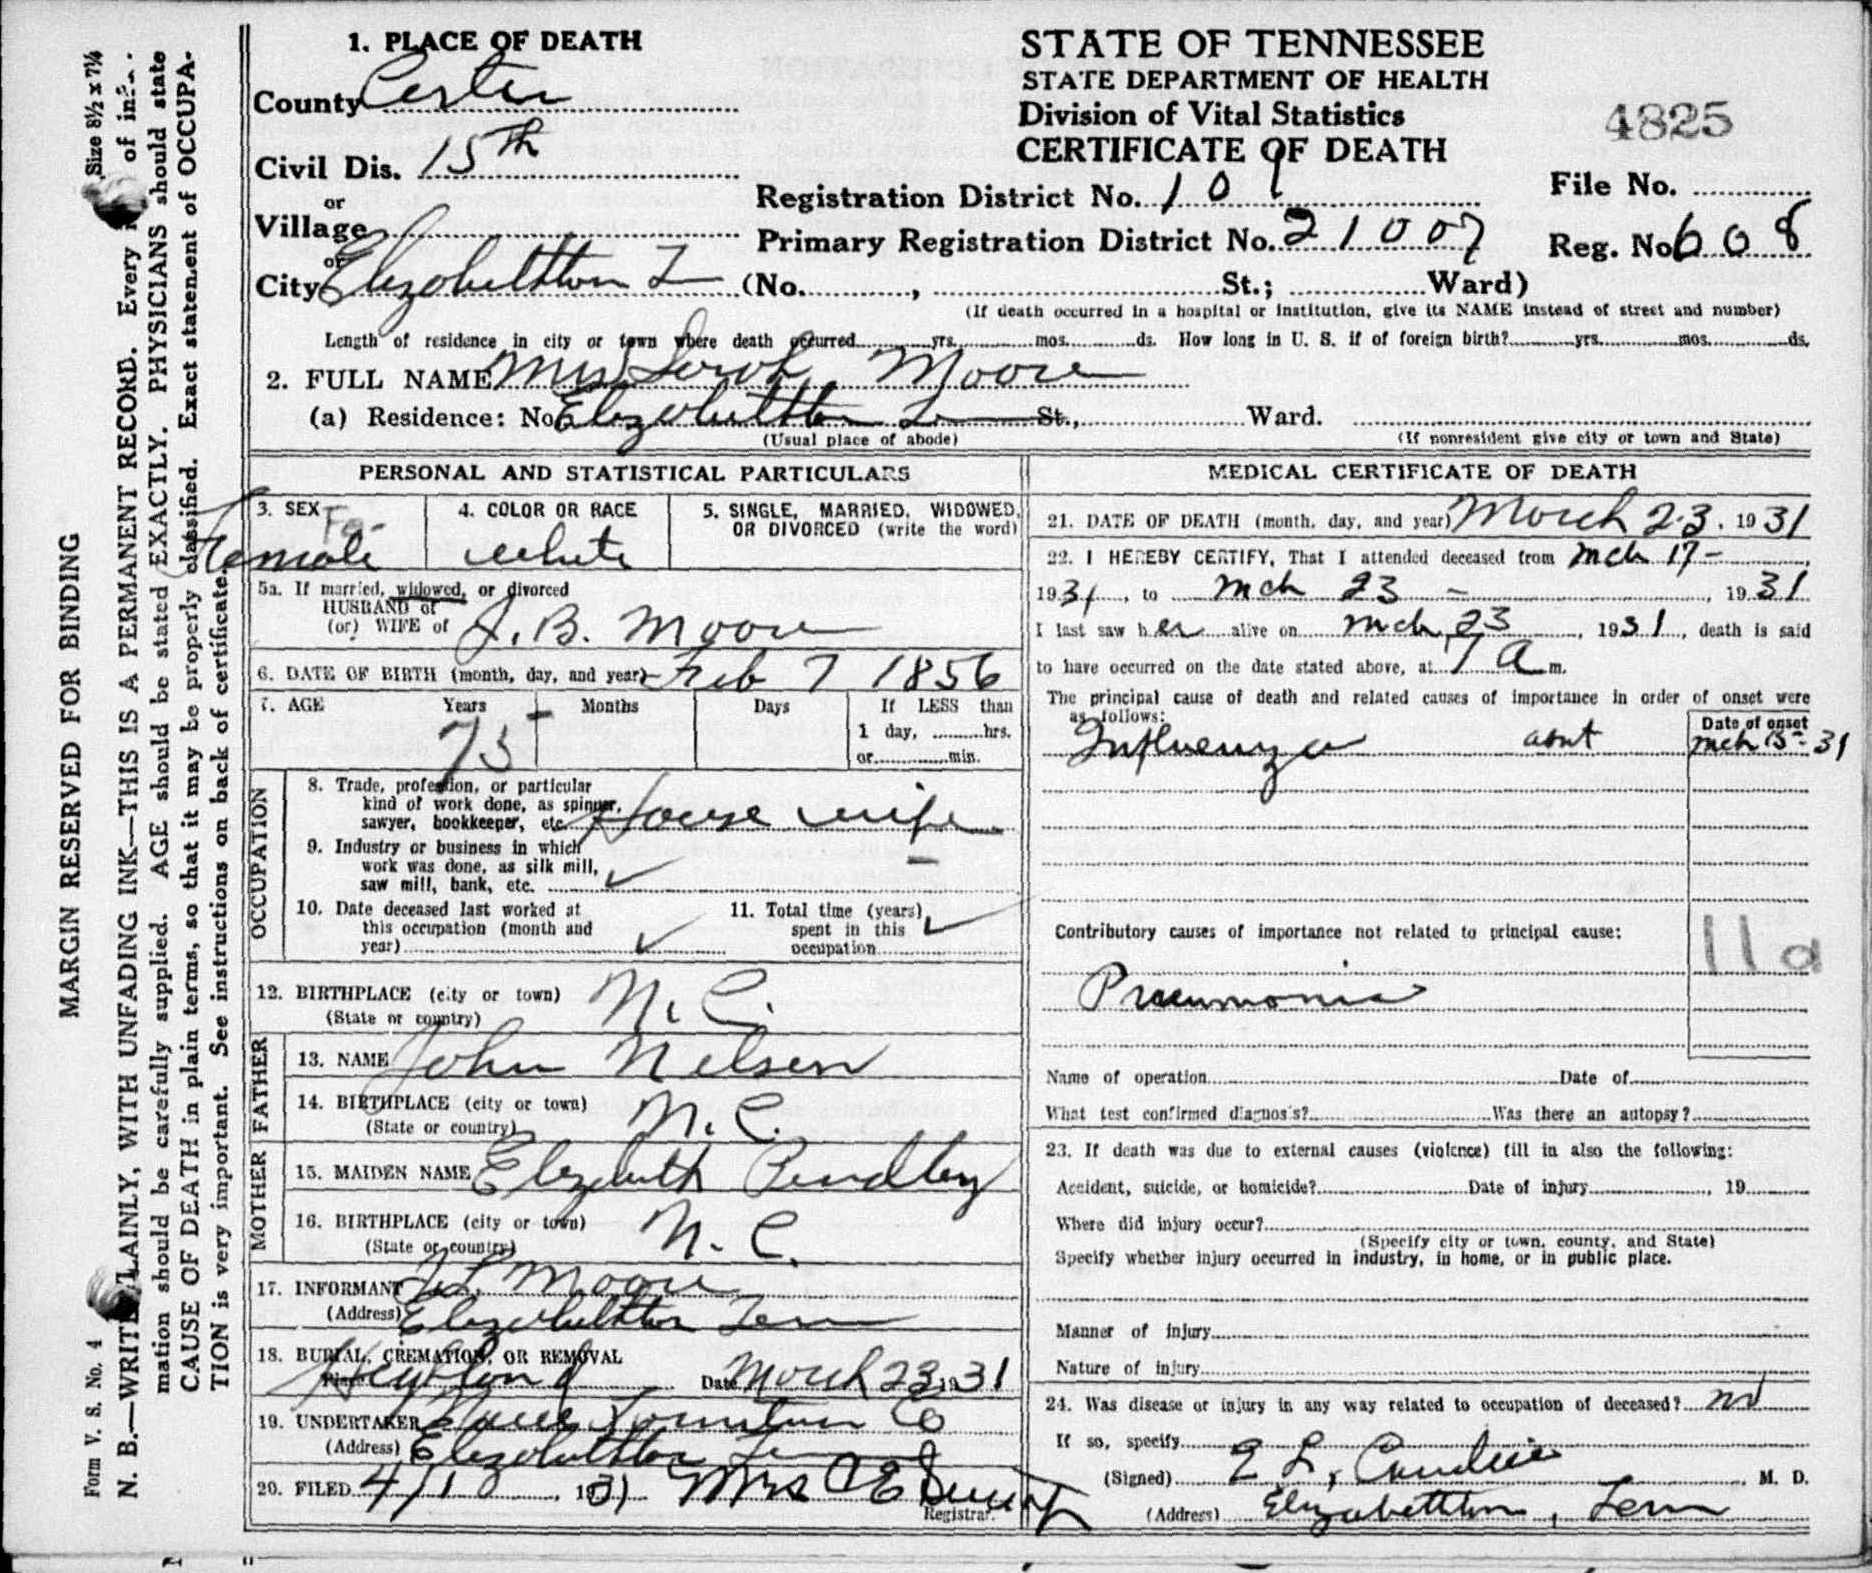 1. PLACE OF DEATH
County Carter
Civil Dis. 15th
or
Village
or
City Elizabethton T
STATE OF TENNESSEE
STATE DEPARTMENT OF HEALTH
Division of Vital Statistics
CERTIFICATE OF DEATH
4825
Registration District No. 101
File No.
Primary Registration District No. 21007
Reg. No 608
(No. , St.; Ward)
(If death occurred in a hospital or institution, give its NAME instead of street and number)
Length of residence in city or town where death occurred yrs. mos. ds. How long in U. S. if of foreign birth? yrs. mos. ds.
2. FULL NAME Mrs Sarah Moore
(a) Residence: No Elizabethton St., Ward.
(Usual place of abode) (If nonresident give city or town and State)
PERSONAL AND STATISTICAL PARTICULARS
3. SEX Fe-
Female
4. COLOR OR RACE
white
5. SINGLE, MARRIED, WIDOWED,
OR DIVORCED (write the word)
5a. If married, widowed, or divorced
HUSBAND of
(or) WIFE of J. B. Moore
6. DATE OF BIRTH (month, day, and year) Feb 7 1856
7. AGE Years Months Days If LESS than
75 1 day, hrs.
or min.
OCCUPATION
8. Trade, profession, or particular
kind of work done, as spinner,
sawyer, bookkeeper, etc House wife
9. Industry or business in which
work was done, as silk mill,
saw mill, bank, etc.
10. Date deceased last worked at
this occupation (month and
year)
11. Total time (years)
spent in this
occupation
12. BIRTHPLACE (city or town) N. C.
(State or country)
FATHER
13. NAME John Nelsen
14. BIRTHPLACE (city or town) N. C.
(State or country)
MOTHER
15. MAIDEN NAME Elizabeth Pendley
16. BIRTHPLACE (city or town) N. C.
(State or country)
17. INFORMANT Moore
(Address) Elizabethton Tenn
18. BURIAL, CREMATION, OR REMOVAL
Place Highland Date March 23 1931
19. UNDERTAKER Co
(Address) Elizabethton
20. FILED 4/10 1931 Mrs C E
Registrar.
MEDICAL CERTIFICATE OF DEATH
21. DATE OF DEATH (month, day, and year) March 23, 1931
22. I HEREBY CERTIFY, That I attended deceased from Mch 17-
1931, to Mch 23 - , 1931
I last saw her alive on Mch 23, 1931, death is said
to have occurred on the date stated above, at 7 A m.
The principal cause of death and related causes of importance in order of onset were
as follows:
Date of onset
Influenza Mch 15- 31
Contributory causes of importance not related to principal cause:
11a
Pneumonia
Name of operation Date of
What test confirmed diagnosis? Was there an autopsy?
23. If death was due to external causes (violence) fill in also the following:
Accident, suicide, or homicide? Date of injury , 19
Where did injury occur?
(Specify city or town, county, and State)
Specify whether injury occurred in industry, in home, or in public place.
Manner of injury
Nature of injury
24. Was disease or injury in any way related to occupation of deceased? no
If so, specify
(Signed) E L, M. D.
(Address) Elizabethton, Tenn
MARGIN RESERVED FOR BINDING
Size 8½ x 7¼
Form V. S. No. 4
N. B.—WRITE PLAINLY, WITH UNFADING INK—THIS IS A PERMANENT RECORD. Every of
mation should be carefully supplied. AGE should be stated EXACTLY. PHYSICIANS should state
CAUSE OF DEATH in plain terms, so that it may be properly classified. Exact statement of OCCUPA-
TION is very important. See instructions on back of certificate.